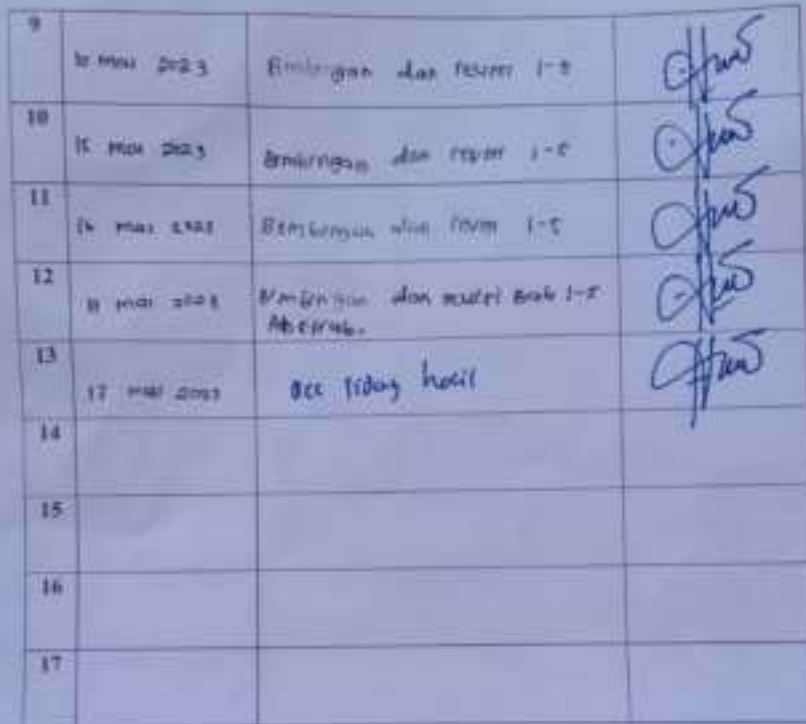 9
10 mei 2023 Bimbingan dan revisi 1-5
10
15 mei 2023 Bimbingan dan revisi 1-5
11
16 mei 2023 Bimbingan dan revisi 1-5
12
mei 2023 Bimbingan dan revisi Bab 1-5
Abstrak.
13
17 mei 2023 acc sidang hasil
14
15
16
17